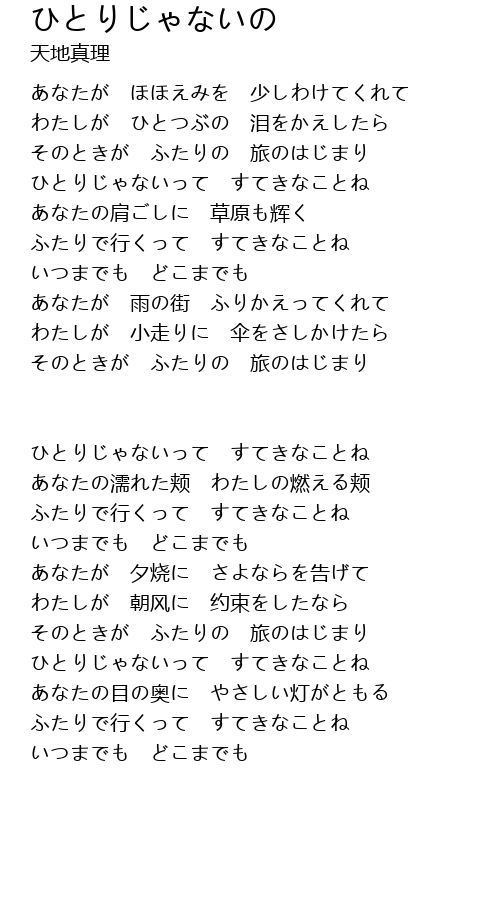 ひとりじゃないの
天地真理
あなたが　ほほえみを　少しわけてくれて
わたしが　ひとつぶの　泪をかえしたら
そのときが　ふたりの　旅のはじまり
ひとりじゃないって　すてきなことね
あなたの肩ごしに　草原も辉く
ふたりで行くって　すてきなことね
いつまでも　どこまでも
あなたが　雨の街　ふりかえってくれて
わたしが　小走りに　伞をさしかけたら
そのときが　ふたりの　旅のはじまり
ひとりじゃないって　すてきなことね
あなたの濡れた颊　わたしの燃える颊
ふたりで行くって　すてきなことね
いつまでも　どこまでも
あなたが　夕烧に　さよならを告げて
わたしが　朝风に　约束をしたなら
そのときが　ふたりの　旅のはじまり
ひとりじゃないって　すてきなことね
あなたの目の奥に　やさしい灯がともる
ふたりで行くって　すてきなことね
いつまでも　どこまでも